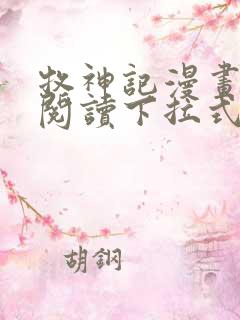 牧神記漫畫
閱讀下拉式
胡鋼